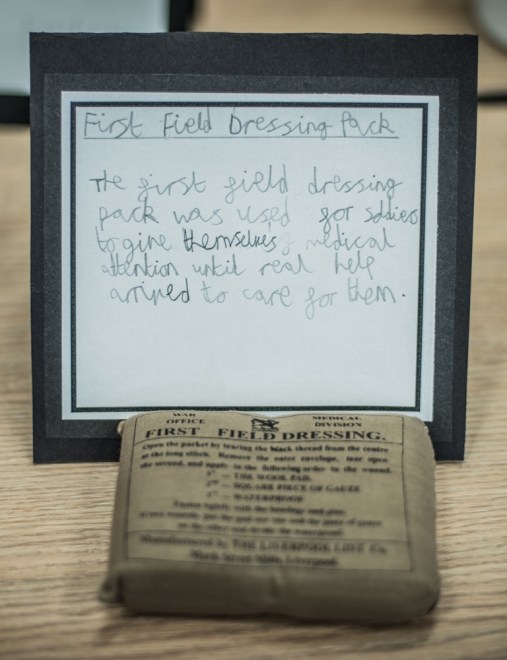 First Field Dressing Pack
The first field dressing
pack was used for soldiers
to give themselves medical
attention until real help
arrived to care for them.
WAR OFFICE
MEDICAL DIVISION
FIRST FIELD DRESSING.
Open the packet by tearing the black thread from the centre
of the long stitch. Remove the outer envelope, tear open
the second, and apply in the following order to the wound.
1st — THE WOOL PAD.
2nd — SQUARE PIECE OF GAUZE
3rd — WATERPROOF
Fasten lightly with the bandage and pins.
Manufactured by THE LIVERPOOL LINT Co.
Mark Street Mills, Liverpool.